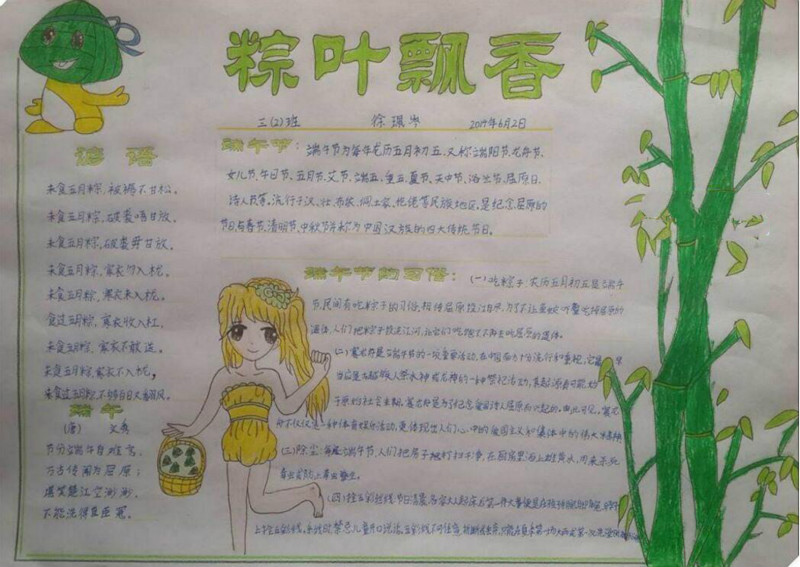 粽叶飘香
三(2)班 徐珮岑 2014年6月2日
谚语
未食五月粽,被褥不甘松。
未食五月粽,破裘唔甘放。
未食五月粽,破裘毋甘放。
未食五月粽,寒衣勿入栊。
未食五月粽,寒衣未入栊。
食过五月粽,寒衣收入杠。
未食五月粽,寒衣不敢送。
未食五月粽,寒衣不入栊。
未食过五月粽,不够百日又翻风。
端午
(唐) 文秀
节分端午自谁言,
万古传闻为屈原;
堪笑楚江空渺渺,
不能洗得直臣冤。
端午节:端午节为每年农历五月初五,又称端阳节、龙舟节、
女儿节、午日节、五月节、艾节、端五、重五、夏节、天中节、浴兰节、屈原日、
诗人节等。流行于汉、壮、布依、侗、土家、仡佬等民族地区,是纪念屈原的
节日,与春节、清明节、中秋节并称为中国汉族的四大传统节日。
端午节的习俗:(一)吃粽子:农历五月初五是端午
节,民间有吃粽子的习俗,相传屈原投江自尽,
遗体,人们把粽子投进江河,让鱼们吃饱了不再去吃屈原的遗体。
(二)赛龙舟是端午节的一项重要活动,在中国南方十分流行
祭水神或龙神的一种祭祀活动,其起源有可能始
于原始社会末期,赛龙舟是为了纪念爱国诗人屈原而兴起的。由此可见,赛龙
舟不仅仅是一种体育娱乐活动,更体现出人们心中的爱国主义和集体中的伟大
(三)除尘:每逢端午节,人们把房子
(四)拴五彩丝线:节日清晨,各家大人起床后第一件大事便是在孩
上拴五彩线。系线时,禁忌儿童开口说话。五彩线不可任意折断或丢弃,只能在夏季第一场大雨或第一次洗澡时